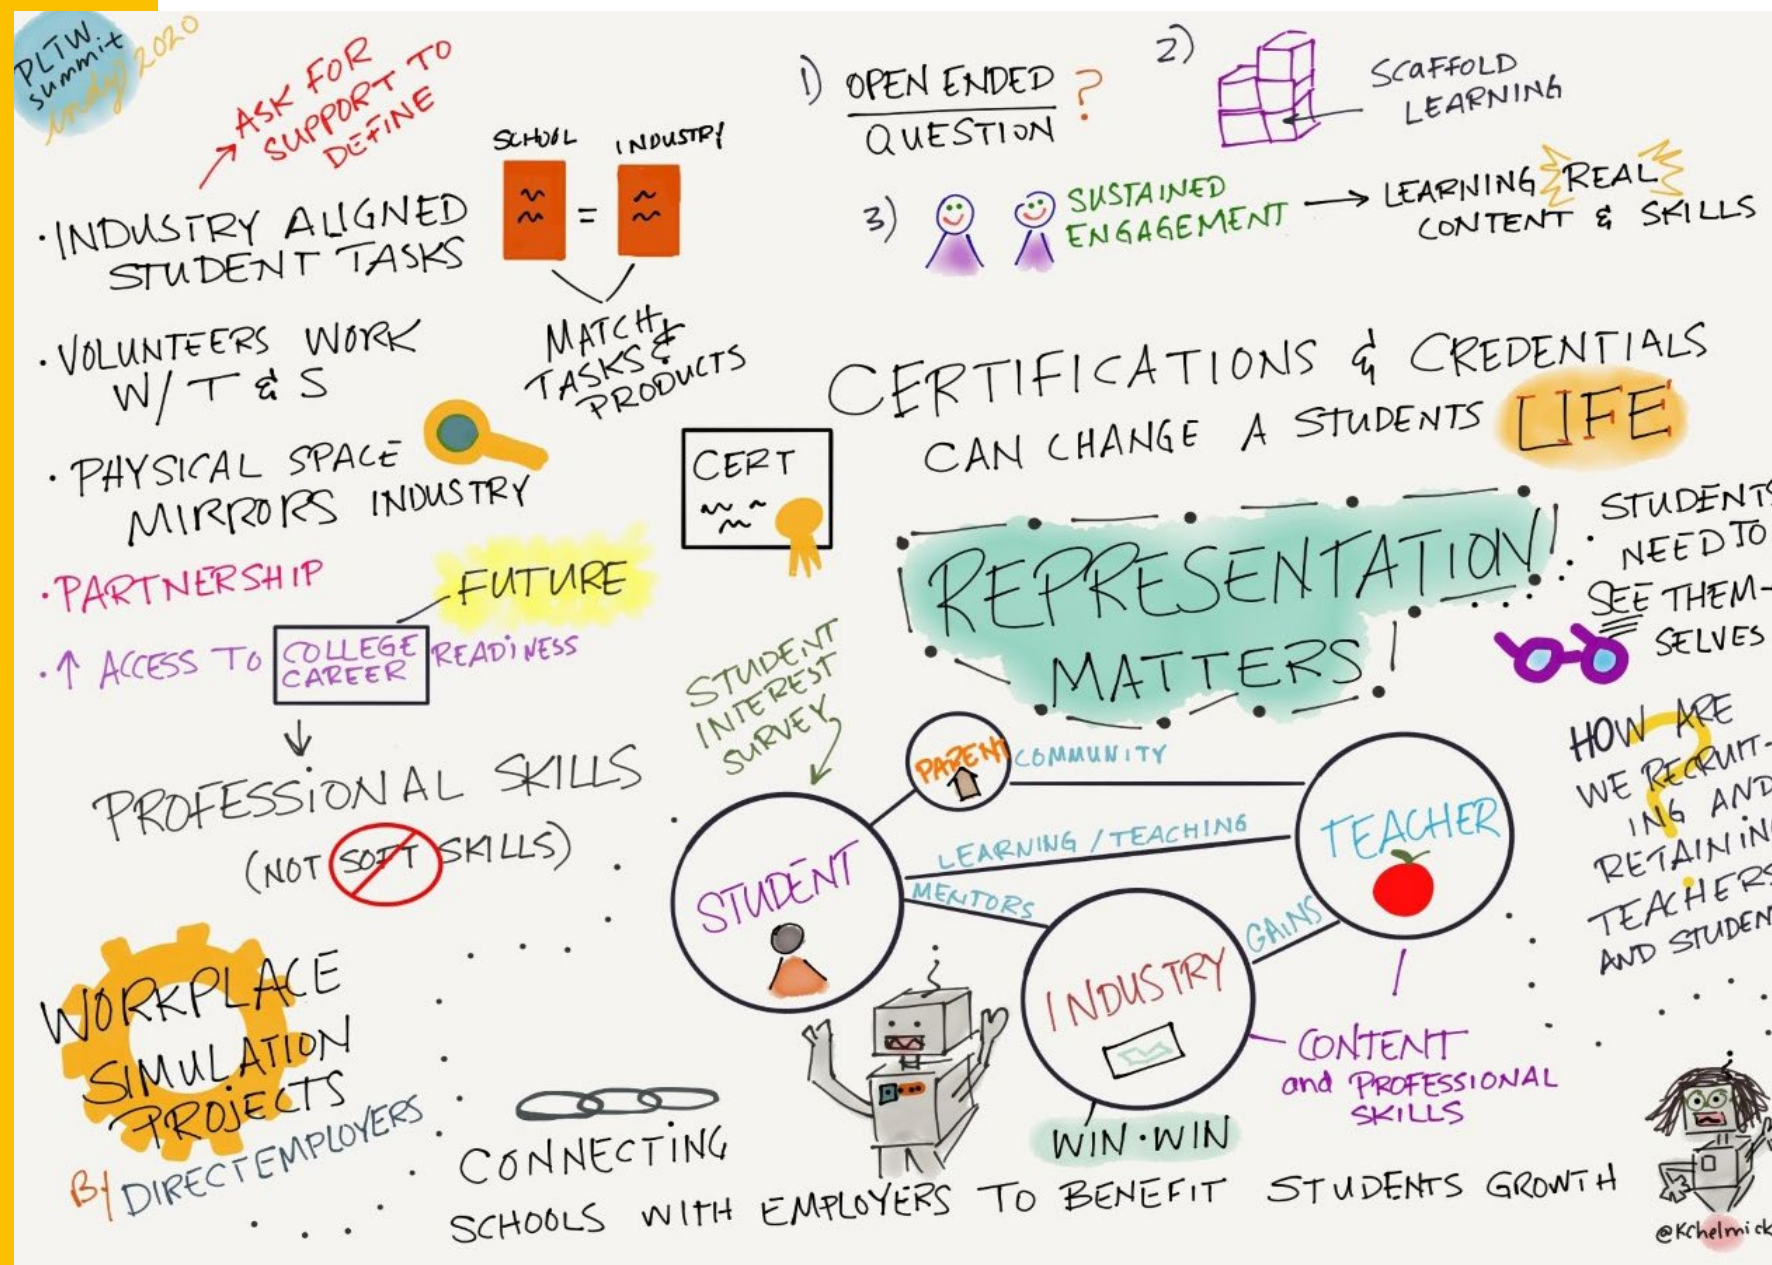 PLTW
summit
indy 2020
ASK FOR
SUPPORT TO
DEFINE
• INDUSTRY ALIGNED
STUDENT TASKS
SCHOOL
INDUSTRY
=
MATCH
TASKS &
PRODUCTS
• VOLUNTEERS WORK
W/ T & S
• PHYSICAL SPACE
MIRRORS INDUSTRY
• PARTNERSHIP
FUTURE
• ↑ ACCESS TO COLLEGE READINESS
CAREER
PROFESSIONAL SKILLS
(NOT SOFT SKILLS)
WORKPLACE
SIMULATION
PROJECTS
BY DIRECTEMPLOYERS
1) OPEN ENDED ?
QUESTION
2)
SCAFFOLD
LEARNING
3) SUSTAINED
ENGAGEMENT → LEARNING REAL
CONTENT & SKILLS
CERTIFICATIONS & CREDENTIALS
CAN CHANGE A STUDENTS LIFE
CERT
REPRESENTATION
MATTERS!
STUDENTS
NEED TO
SEE THEM-
SELVES
STUDENT
INTEREST
SURVEY
PARENT
COMMUNITY
STUDENT
LEARNING / TEACHING
MENTORS
TEACHER
INDUSTRY
GAINS
WIN • WIN
CONTENT
and PROFESSIONAL
SKILLS
HOW ARE
WE RECRUIT-
ING AND
RETAINING
TEACHERS
AND STUDENT
?
CONNECTING
SCHOOLS WITH EMPLOYERS TO BENEFIT STUDENTS GROWTH
@KChelmick